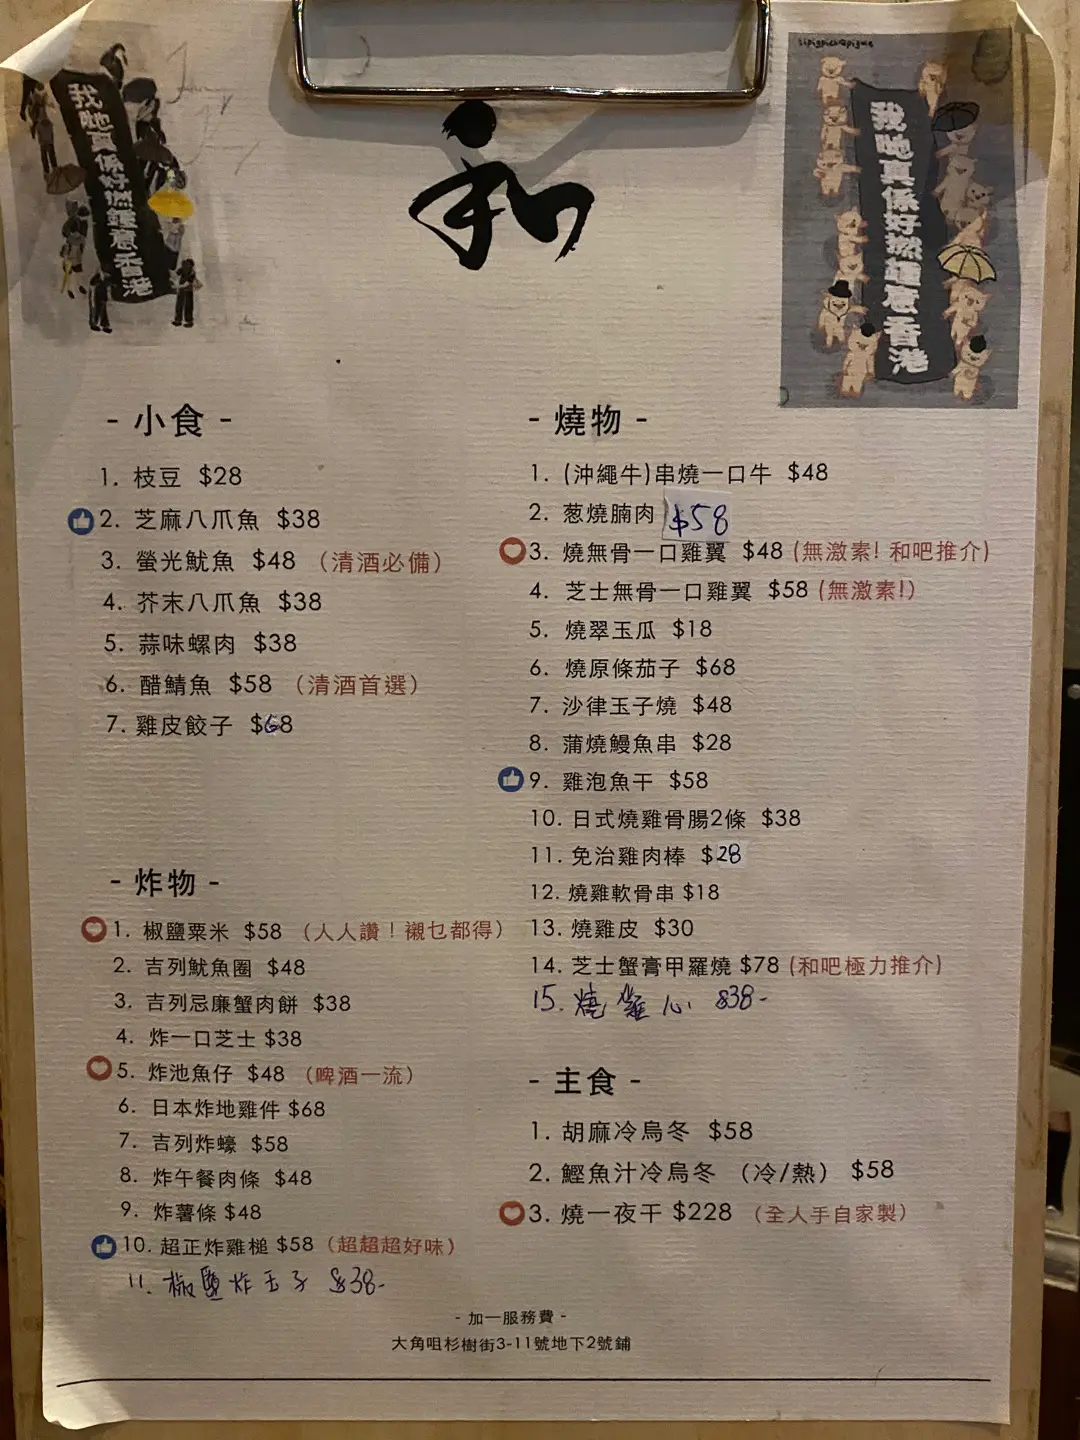 我哋真係好撚鍾意香港
和
sipigpichapigme
我哋真係好撚鍾意香港
- 小食 -
1. 枝豆 $28
2. 芝麻八爪魚 $38
3. 螢光魷魚 $48 (清酒必備)
4. 芥末八爪魚 $38
5. 蒜味螺肉 $38
6. 醋鯖魚 $58 (清酒首選)
7. 雞皮餃子 $68
- 炸物 -
1. 椒鹽粟米 $58 (人人讚！襯乜都得)
2. 吉列魷魚圈 $48
3. 吉列忌廉蟹肉餅 $38
4. 炸一口芝士 $38
5. 炸池魚仔 $48 (啤酒一流)
6. 日本炸地雞件 $68
7. 吉列炸蠔 $58
8. 炸午餐肉條 $48
9. 炸薯條 $48
10. 超正炸雞槌 $58 (超超超好味)
11. 椒鹽炸玉子 $38-
- 燒物 -
1. (沖繩牛)串燒一口牛 $48
2. 葱燒腩肉 $58
3. 燒無骨一口雞翼 $48 (無激素! 和吧推介)
4. 芝士無骨一口雞翼 $58 (無激素!)
5. 燒翠玉瓜 $18
6. 燒原條茄子 $68
7. 沙律玉子燒 $48
8. 蒲燒鰻魚串 $28
9. 雞泡魚干 $58
10. 日式燒雞骨腸2條 $38
11. 免治雞肉棒 $28
12. 燒雞軟骨串 $18
13. 燒雞皮 $30
14. 芝士蟹膏甲羅燒 $78 (和吧極力推介)
15. 燒雞心 $38-
- 主食 -
1. 胡麻冷烏冬 $58
2. 鰹魚汁冷烏冬 (冷/熱) $58
3. 燒一夜干 $228 (全人手自家製)
- 加一服務費 -
大角咀杉樹街3-11號地下2號鋪